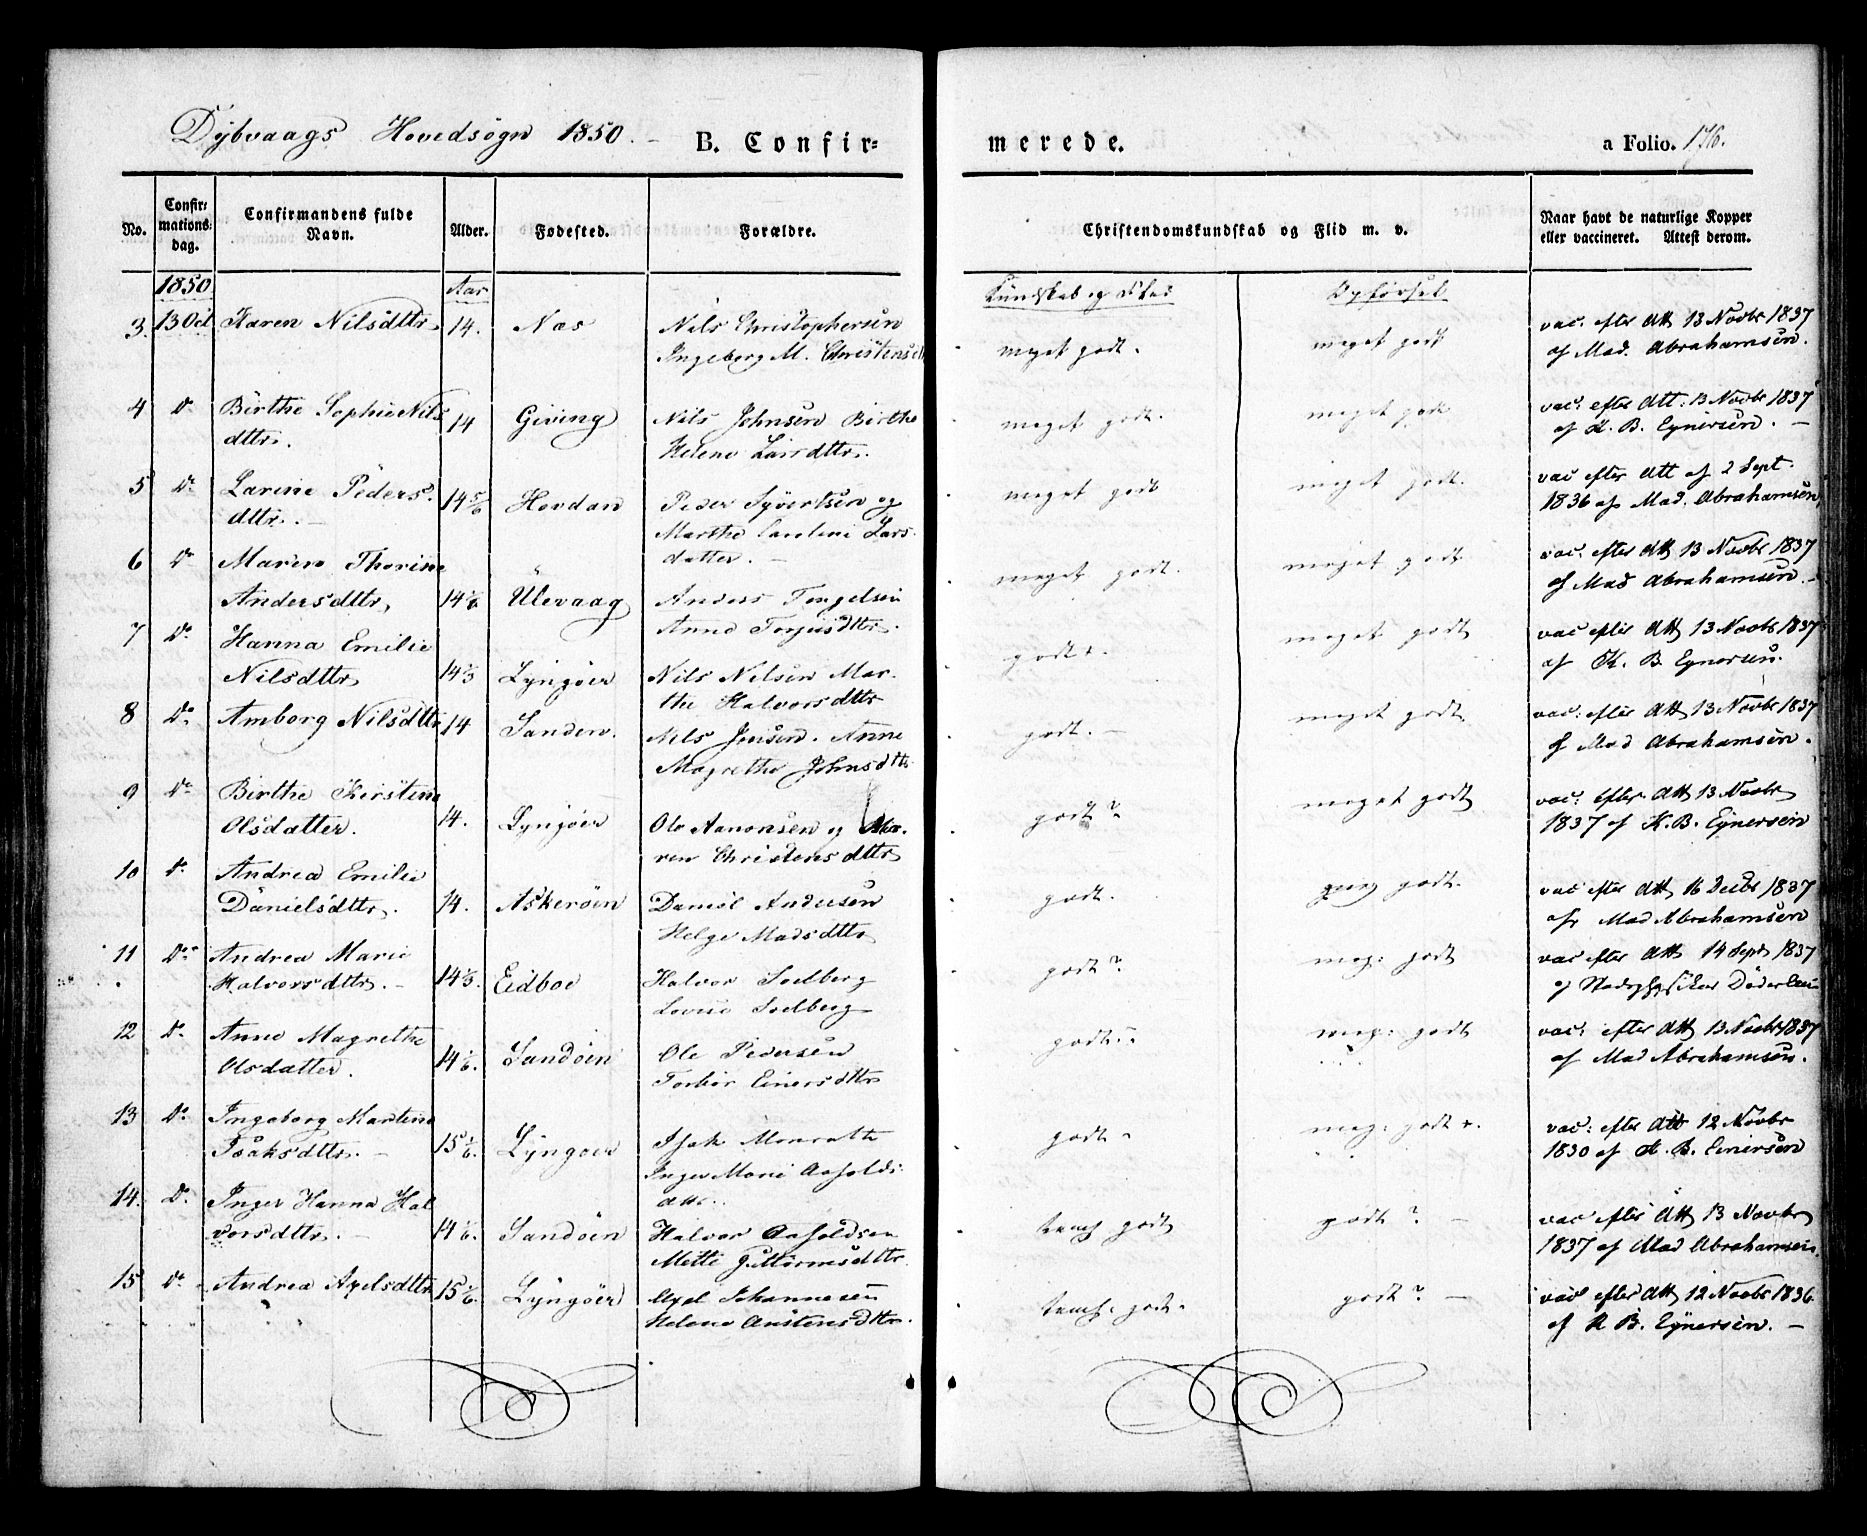 Dybvaags Hovedsogn 1850. – B. Confirmerede. a Folio. 176.
No. Confirmationsdag. Confirmandens fulde Navn. Alder. Fødested. Forældre. Christendomskundskab og Flid m. v. Naar havt de naturlige Kopper eller vaccineret. Attest derom.
1850 Aar Kundskab og Flid Opførsel
3. 13 Oct Karen Nilsdttr 14. Næs Nils Christophersen meget godt. meget godt vac. efter Att 13 Novbr 1837
Ingeborg M. Christensd af Mad. Abrahamsen.
4 Do Birthe Sophie Nils 14 Giving Nils Johnsen Birthe meget godt. meget godt vac: efter Att: 13 Novbr 1837
dttr. Helene Larsdttr. af K. B. Eynersen. –
5 Do Larine Peders 14 5/6 Hovdan Peder Syvertsen og meget godt meget godt. vac efter Att af 2 Sept.
dttr. – Marthe Caroline Lars- 1836 af Mad. Abrahamsen
datter. –
6 Do Maren Thorine meget godt. meget godt vac. efter Att 13 Novbr 1837
Andersdttr, 14 1/6 Ulevaag Anders Tengelsen af Mad Abrahamsen. –
Anne Terjusdttr.
7 Do Hanna Emilie godt. meget godt vac efter Att 13 Novbr 1837
Nilsdttr 14 1/3 Lyngøer Nils Nilsen Mar- af K. B. Eynersen.
the Halvorsdttr
8 Do Amborg Nilsdttr 14 Sanden. Nils Jensen. Anne godt. – meget godt. vac: efter Att 13 Novbr 1837
Magrethe Johnsdttr af Mad Abrahamsen.
9 Do Birthe Kirstine godt? meget godt vac: efter Att 13 Novbr
Olsdatter. 14. Lyngøer Ole Aanonsen og Ma- 1837 af K. B. Eynersen
ren Christensdttr
10 Do Andrea Emilie godt. godt. vac efter Att 16 Decbr 1837
Danielsdttr. 14. Askerøen Daniel Andersen af Mad Abrahamsen
Helge Madsdttr
11 Do Andrea Marie godt? meg: godt vac efter Att 14 Sept 1837
Halvorsdttr. – 14 1/3. Eidboe Halvor Soelberg af Stadsphysikus Døderlein
Lovise Soelberg
12 Do Anne Magrethe godt. meg: godt vac: efter Att 13 Novbr 1837
Olsdatter. 14 1/6. Sandøen Ole Pedersen af Mad Abrahamsen.
Torbør Einersdttr
13 Do Ingeborg Martine godt meg: godt. vac: efter Att 12 Novbr
Isaksdttr. – 15 1/6. Lyngøer Isak Monrath 1830 af K. B. Einersen
Inger Marie Aasolds-
dttr.
14. Do Inger Hanna Hal teml godt godt? – vac efter Att 13 Novbr
vorsdttr. – 14 1/6. Sandøen Halvor Aasoldsen 1837 af Mad Abrahamsen.
Mette Guttormsdttr
15 Do Andrea Axelsdttr 15 1/6. Lyngøer Axel Johannesen teml. godt. godt? – vac efter Att 12 Novbr 1836
Helene Austensdttr. af K B. Eynersen. –